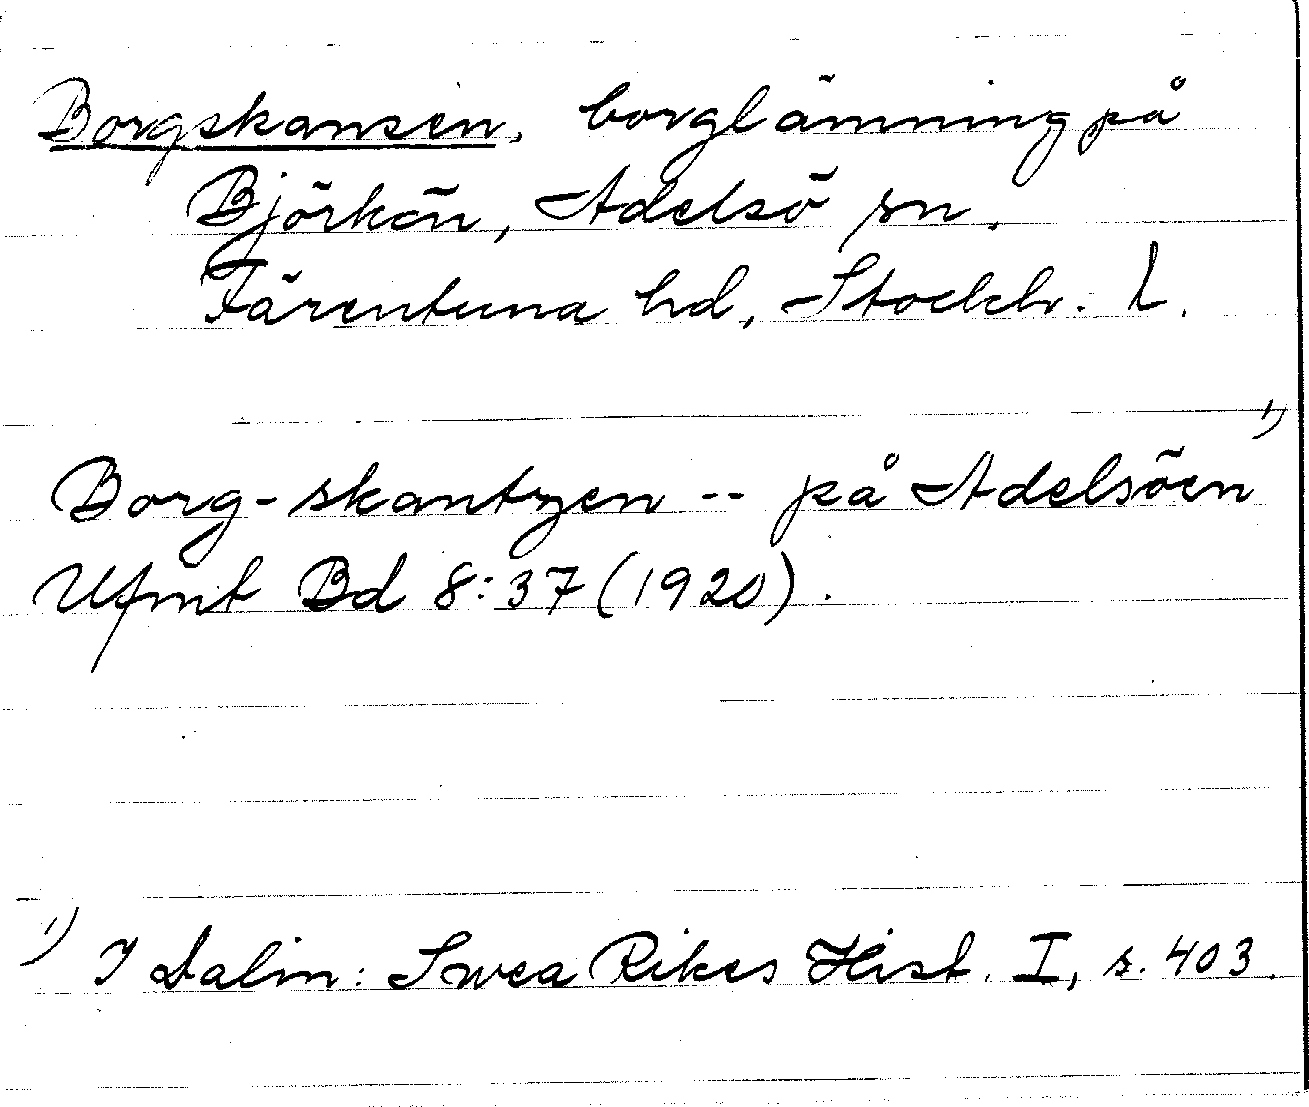 Borgskansen, borglämning på
Björkön, Adelsö sn.
Färentuna hd, Stockh. l.
Borg-skantzen -- på Adelsöen 1)
Ufmt Bd 8:37 (1920).
1) I Dalin: Swea Rikes Hist. I, s. 403.